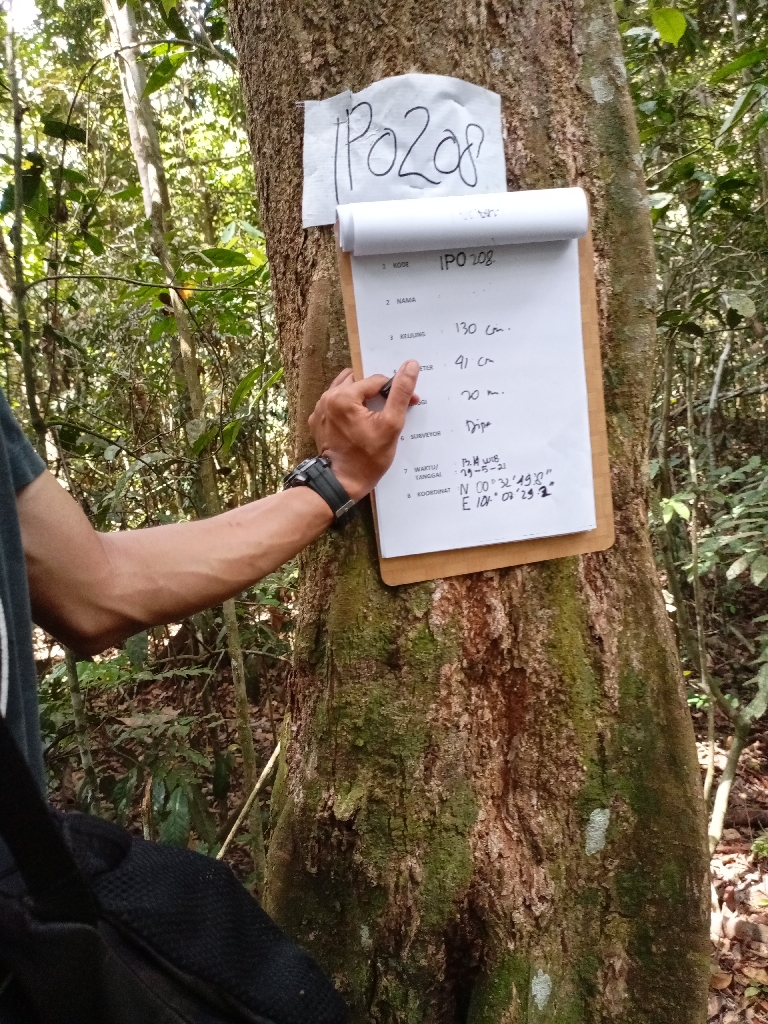 IPO208
1 KODE IPO 208
2 NAMA
3 KELILING : 130 cm.
METER : 41 cm
GGI : 20 m.
6 SURVEYOR : Dipo
7 WAKTU/ WIB
TANGGAL : 29-5-21
8 KOORDINAT N 00° 32' 49.8"
E 101° 07' 29.2"